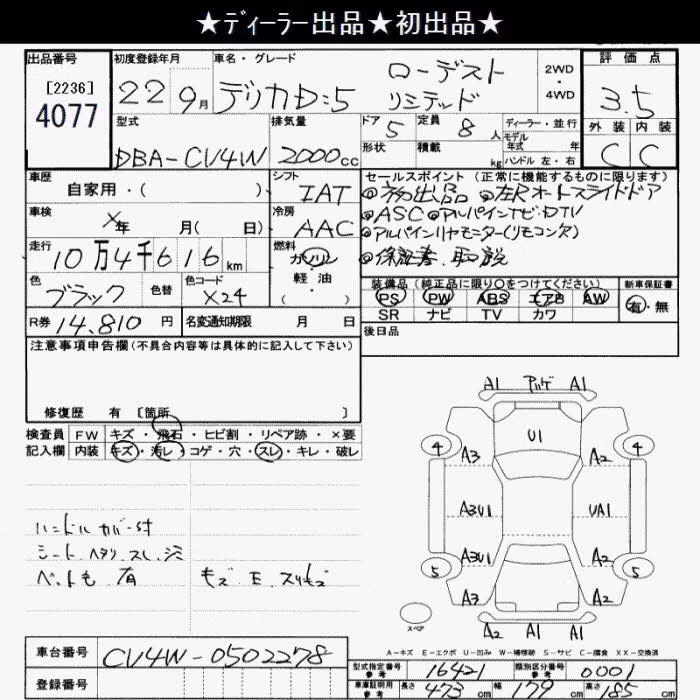 ★ディーラー出品★初出品★
出品番号
[2236]
4077
初度登録年月
22 9月
車名・グレード
デリカD:5
ローデスト
リミテッド
2WD
・
4WD
評価点
3.5
外装 内装
C C
型式
DBA-CV4W
排気量
2000cc
ドア
5
定員
8人
形状
積載
kg
ディーラー・並行
モデル
年式 年
ハンドル 左・右
車歴
自家用・( )
シフト
IAT
車検
×年 月( 日)
冷房
AAC
走行
10万4千616km
燃料
ガソリン
軽油
・( )
色
ブラック
色替
色コード
X24
R券
14,810円
名変通知期限 月 日
セールスポイント (正常に機能するものに限ります)
◎初出品 ◎左Rオートスライドドア
◎ASC ◎アルパインナビ・DTV
◎アルパインリヤモニター(リモコン欠)
◎保証書、取説
装備品(純正品に限り○をつけてください)
PS PW ABS エアB AW
SR ナビ TV カワ
新車保証書
有・無
後日品
注意事項申告欄(不具合内容等は具体的に記入して下さい)
修復歴 有 〔箇所 〕
検査員 FW キズ・飛石・ヒビ割・リペア跡・×要
記入欄 内装 キズ・汚レ・コゲ・穴・スレ・キレ・破レ
ハンドル カバー付
シート ヘタリ、スレ、シミ
ペットも 有
A1 A1
U1
4 4
A3 A2
A3U1 UA1
A3U1 A2
5 5
A3 A2
スペア
A2 A1 A1
A-キズ E-エクボ U-凹み W-補修跡 S-サビ C-腐食 XX-交換済
車台番号
CV4W-0502278
登録番号
型式指定番号
参考
16421
類別区分番号
参考
0001
車庫証明用
参考
長さ 473cm 幅 179cm 高さ 185cm